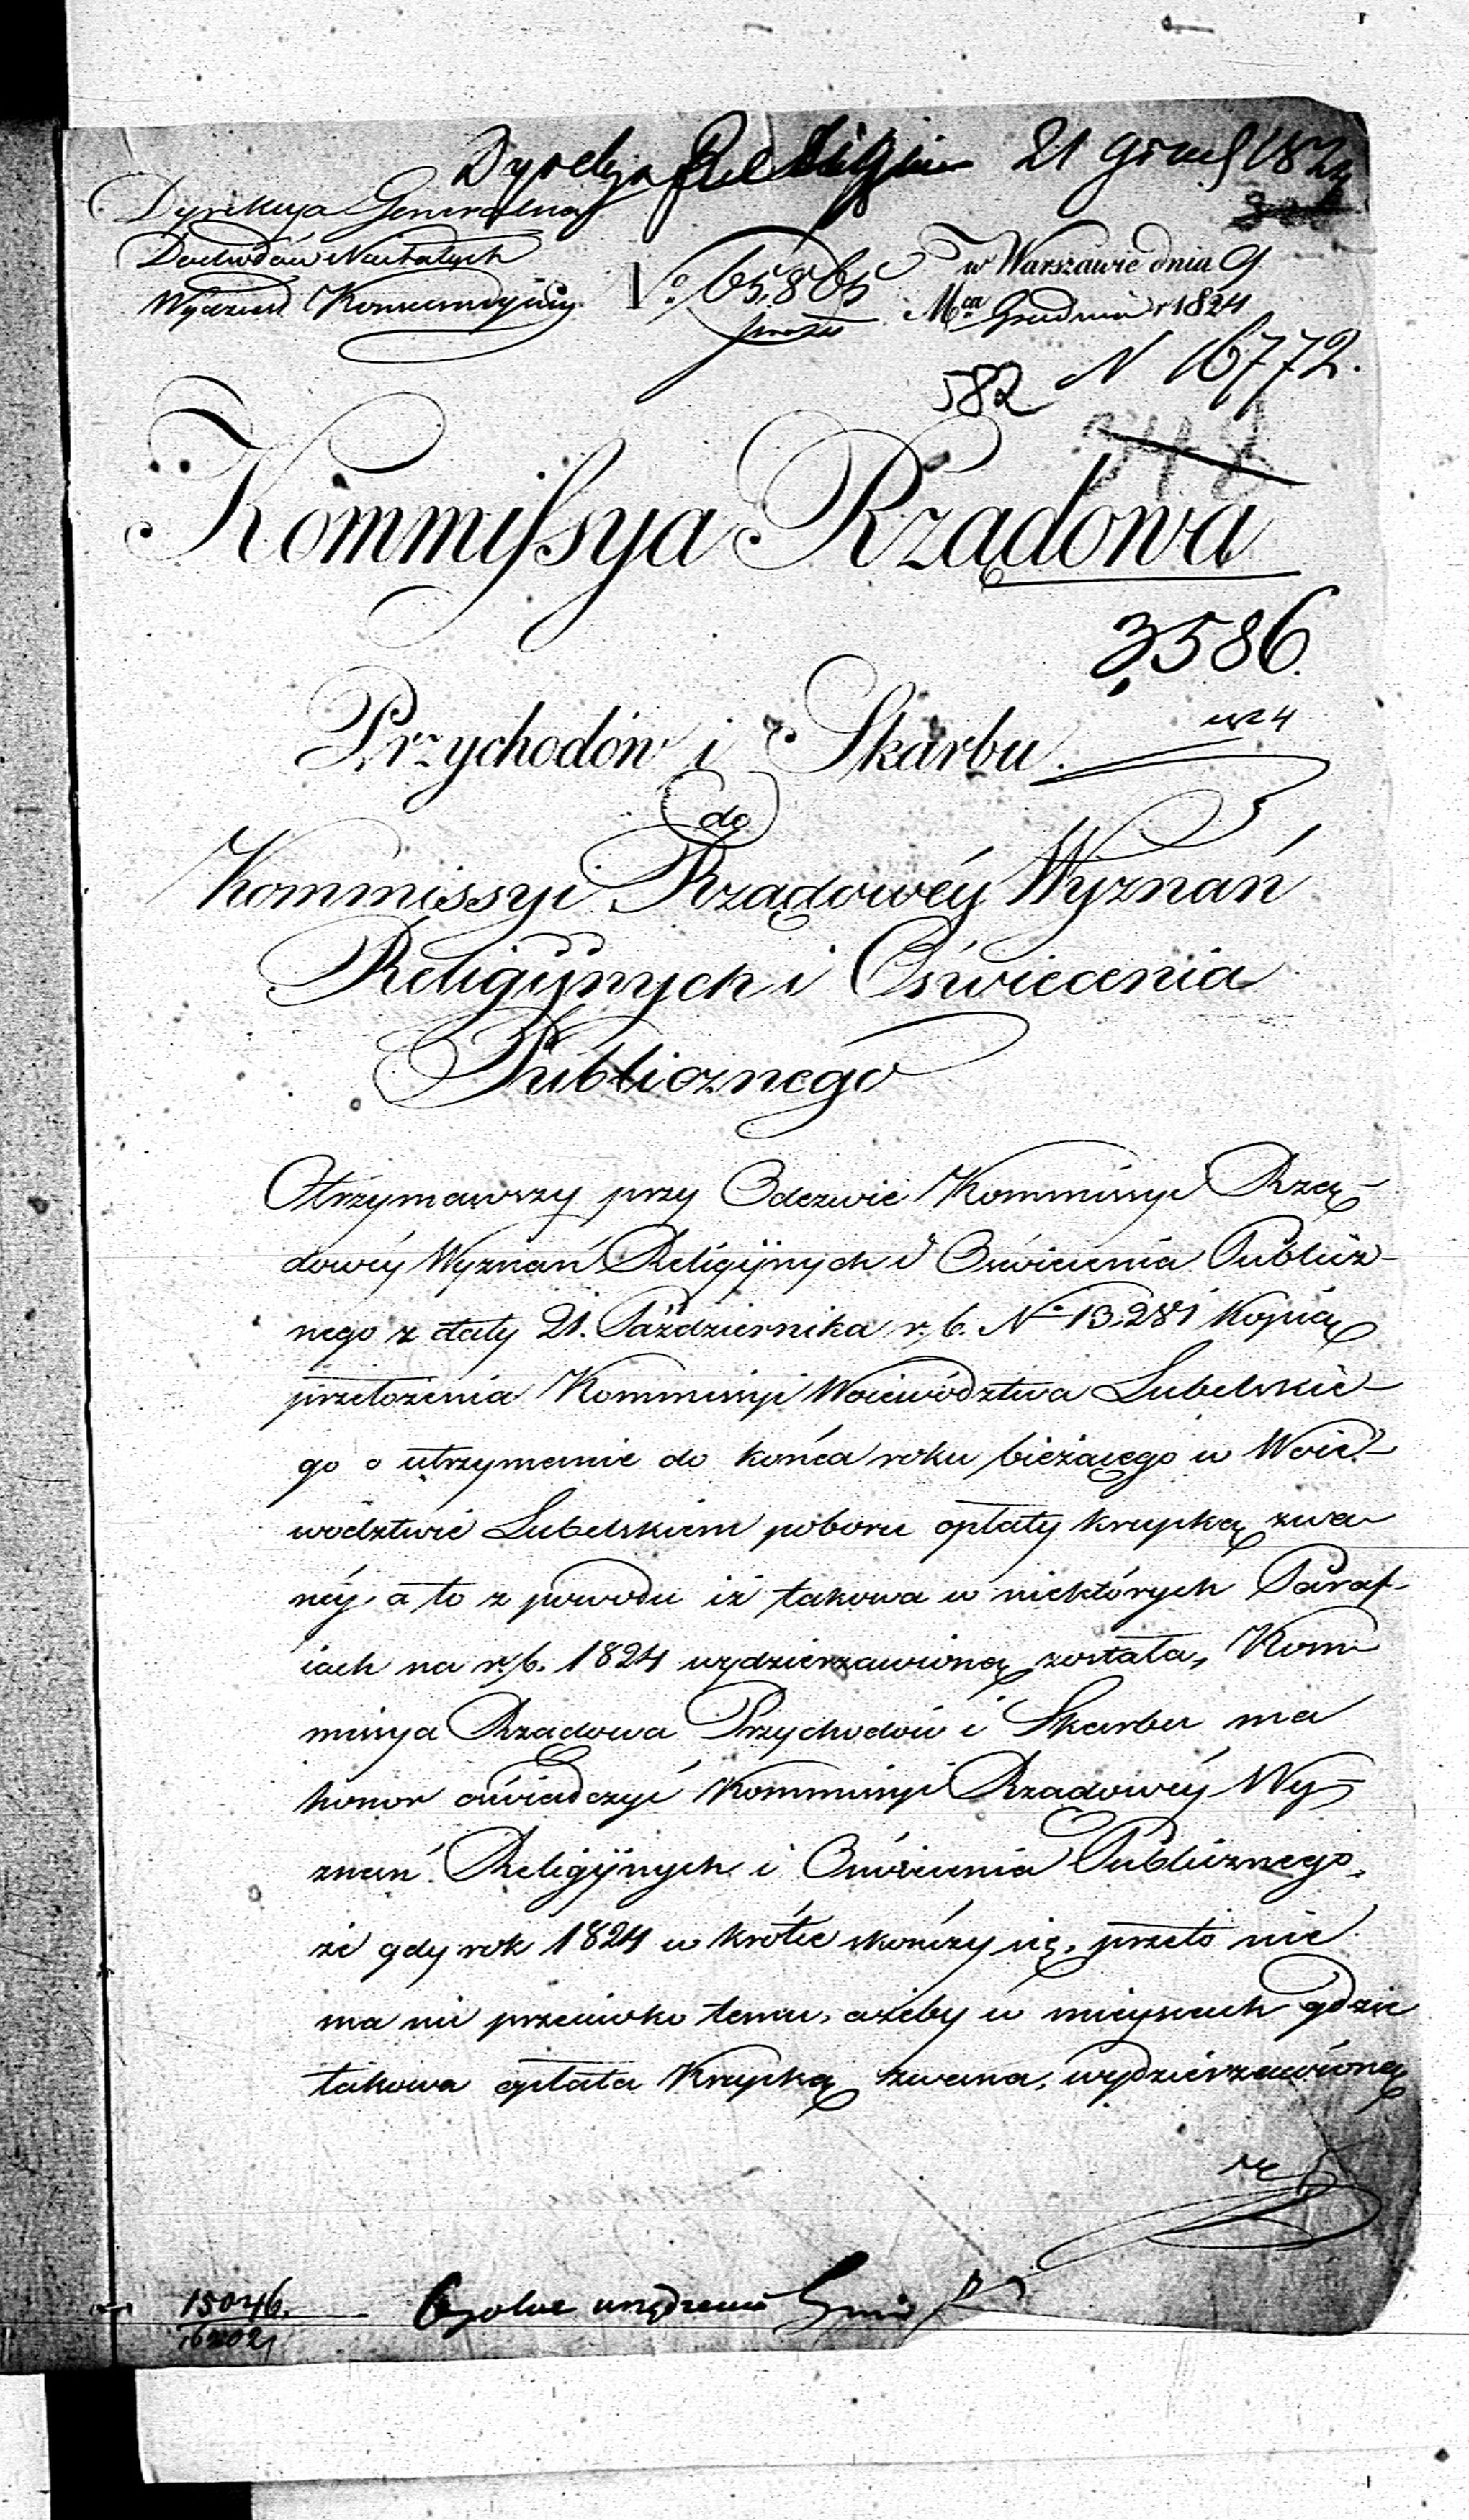 21 1824
Dyrekcya Generalna
Dochodów Niestałych
Wydział Konsumcyjny
No 65,865
w Warszawie dnia 9
Mca Grudnia r 1824
N 16772.
582
Kommissya Rządowa
3586.
Przychodów i Skarbu.
do
Kommissyi Rządowéy Wyznań
Religiynych i Oświecenia
Publicznego
Otrzymawszy przy Odezwie Kommissyi Rzą-
dowéy Wyznań Religiynych i Oświecenia Publicz-
nego z daty 21. Października r. b. No 13,281 kopią
przełożenia Kommissyi Woiewództwa Lubelskie-
go o utrzymanie do końca roku bieżącego w Woie-
wództwie Lubelskiem poboru opłaty krupką zwa-
néy, a to z powodu iż takowa w niektórych Paraf-
iach na r. b. 1824 wydzierzawioną została, Kom-
missya Rządowa Przychodów i Skarbu ma
honor oświadczyć Kommissyi Rządowéy Wy-
znań Religiynych i Oświecenia Publicznego,
że gdy rok 1824 w krótce skończy się, przeto nie
ma nic przeciwko temu, ażeby w mieyscach gdzie
takowa opłata Krupką zwana, wydzierzawioną
15046.